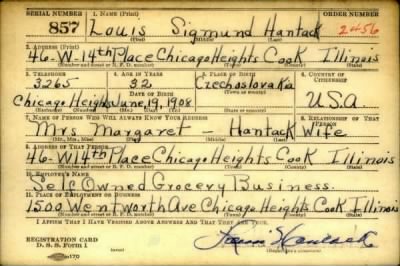 SERIAL NUMBER 1. NAME (Print) ORDER NUMBER
857 Louis Sigmund Hantack 2456
(First) (Middle) (Last)
2. ADDRESS (Print)
46-W-14th Place Chicago Heights Cook Illinois
(Number and street or R. F. D. number) (Town) (County) (State)
3. TELEPHONE 4. AGE IN YEARS 5. PLACE OF BIRTH 6. COUNTRY OF CITIZENSHIP
3265 32 Czechoslovakia
DATE OF BIRTH
Chicago Heights June, 19, 1908 U.S.A.
7. NAME OF PERSON WHO WILL ALWAYS KNOW YOUR ADDRESS 8. RELATIONSHIP OF THAT PERSON
Mrs. Margaret - Hantack Wife
(Mr., Mrs., Miss) (First) (Middle) (Last)
9. ADDRESS OF THAT PERSON
46-W14th Place Chicago Heights Cook Illinois
(Number and street or R. F. D. number) (Town) (County) (State)
10. EMPLOYER'S NAME
Self Owned Grocery Business.
11. PLACE OF EMPLOYMENT OR BUSINESS
1500 Wentworth Ave Chicago Heights Cook Illinois
(Number and street or R. F. D. number) (Town) (County) (State)
I AFFIRM THAT I HAVE VERIFIED ABOVE ANSWERS AND THAT THEY ARE TRUE.
REGISTRATION CARD
D. S. S. Form 1
Louis Hantack